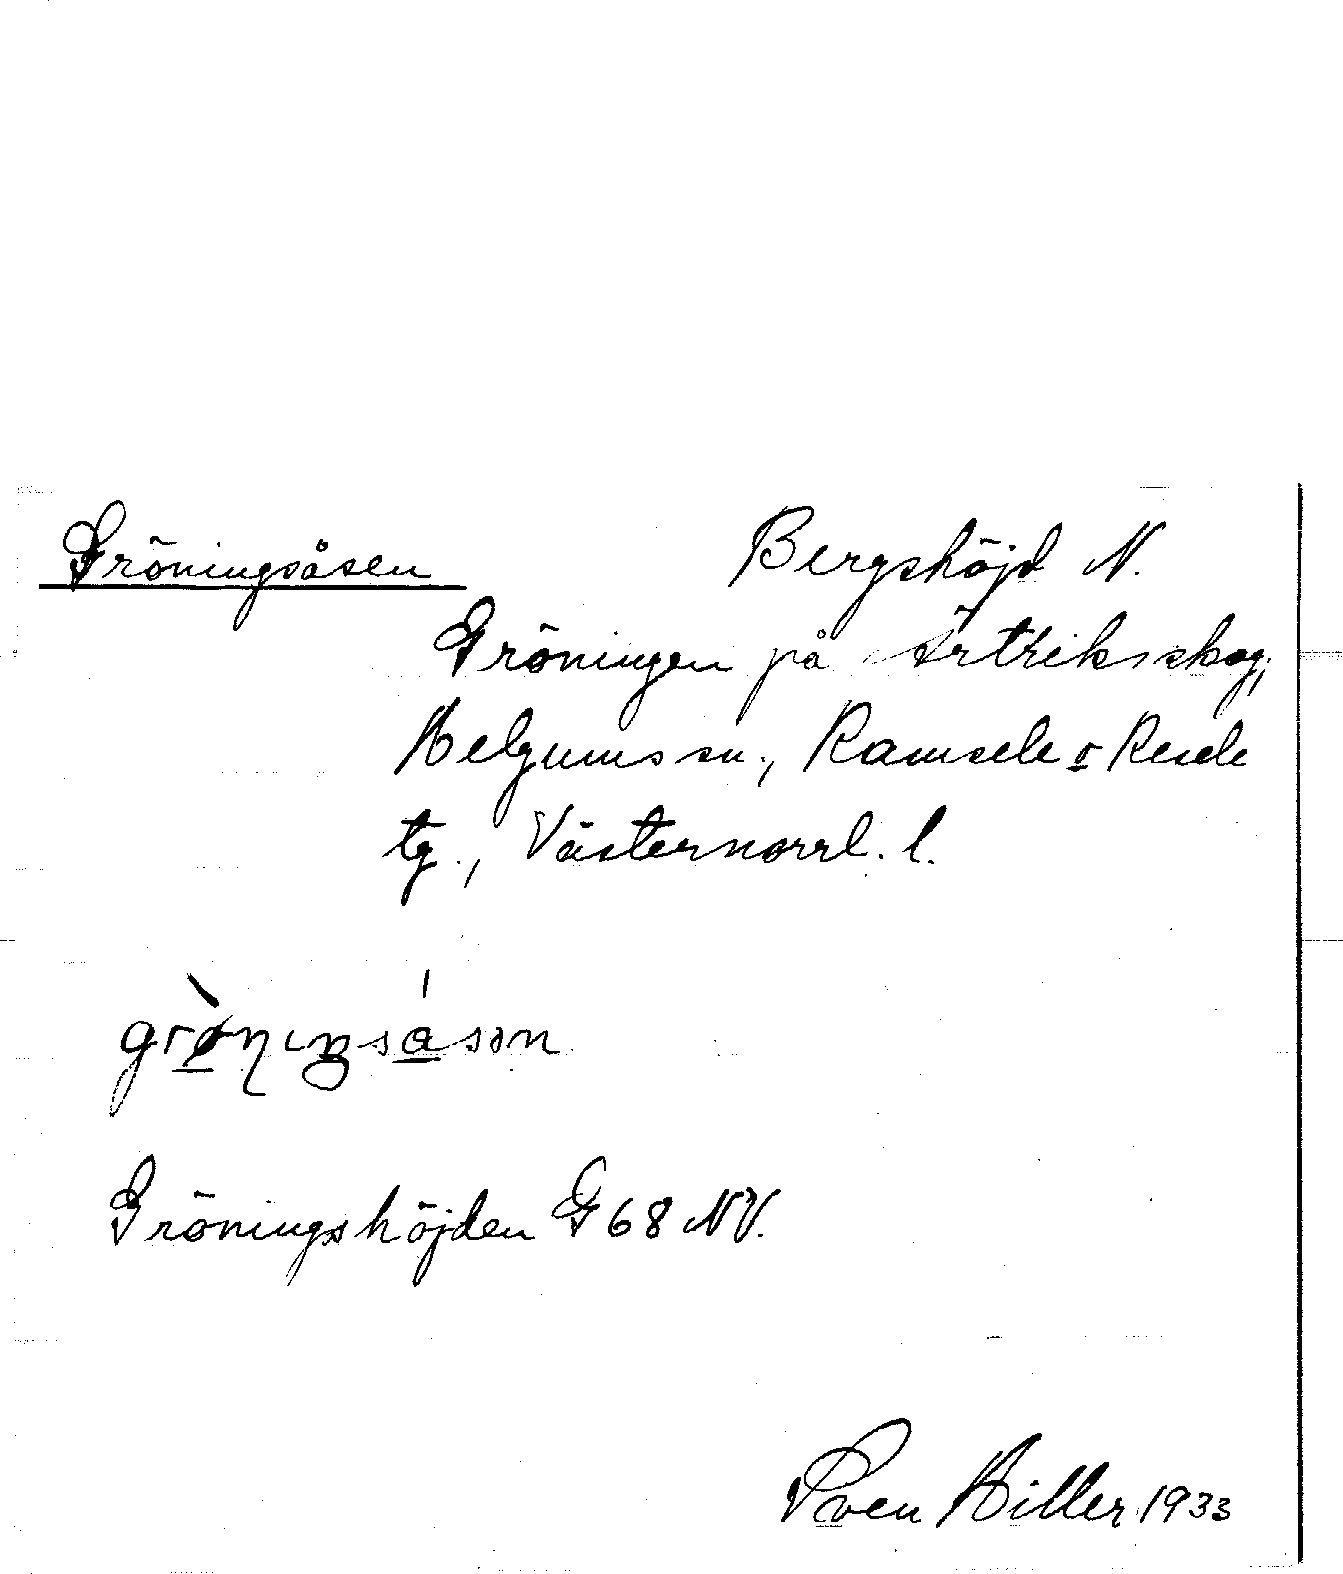 Gröningsåsen Bergshöjd N.
Gröningen på Örtriksskog,
Helgums sn., Ramsele o Resele
tg., Västernorrl. l.
grø̀nıŋsásən
Gröningshöjden G 68 NV.
Sven Hiller 1933